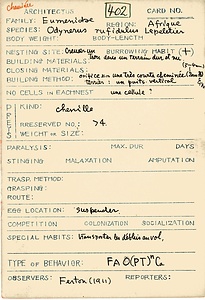 cheminée
ARCHITECTUS 402 CARD NO.
FAMILY: Eumenidae REGION: Afrique
SPECIES: Odynerus rufidulus Lepeletier
BODY WEIGHT: BODY-LENGTH
NESTING SITE: BURROWING HABIT (+)
BUILDING MATERIALS: dans un terrain dur et nu
CLOSING MATERIALS:
BUILDING METHOD: orifice sur une très courte cheminée
terrier: un puits vertical
NO CELLS IN EACH NEST une cellule?
PREY
KIND: chenille
PRESERVED NO.: >4
WEIGHT or SIZE:
PARALYSIS: MAX. DUR DAYS
STINGING MALAXATION AMPUTATION
TRASP. METHOD:
GRASPING:
ROUTE:
EGG LOCATION: suspendu
COMPETITION COLONIZATION SOCIALIZATION
SPECIAL HABITS: transporter les déblais au vol,
TYPE OF BEHAVIOR:
OBSERVERS: Ferton (1911) REPORTERS: